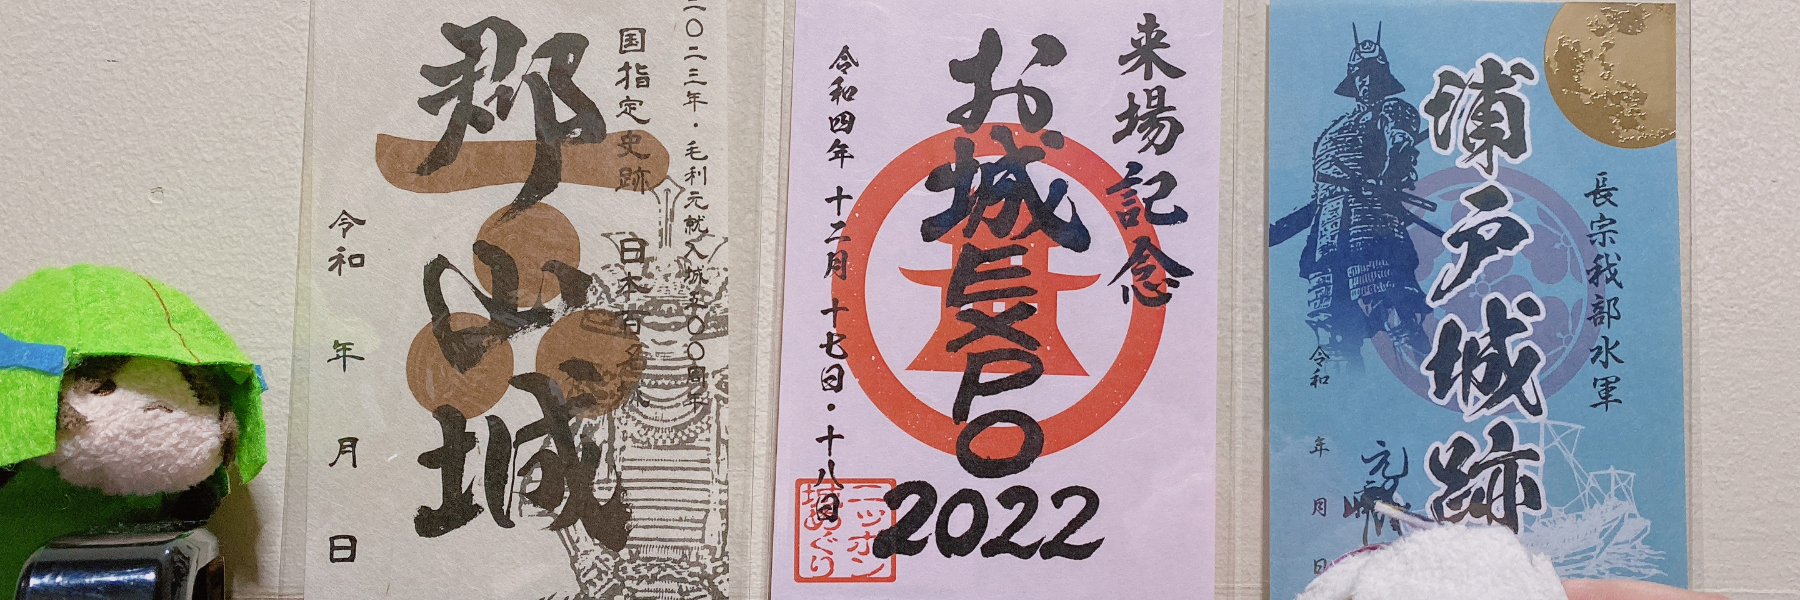 二〇二三年・毛利元就入城五〇〇周年
国指定史跡 日本百名城
郡山城
令和 年 月 日
来場記念
お城EXPO
2022
令和四年 十二月 十七日・十八日
ニッポン
城めぐり
長宗我部水軍
浦戸城跡
令和 年 月 日